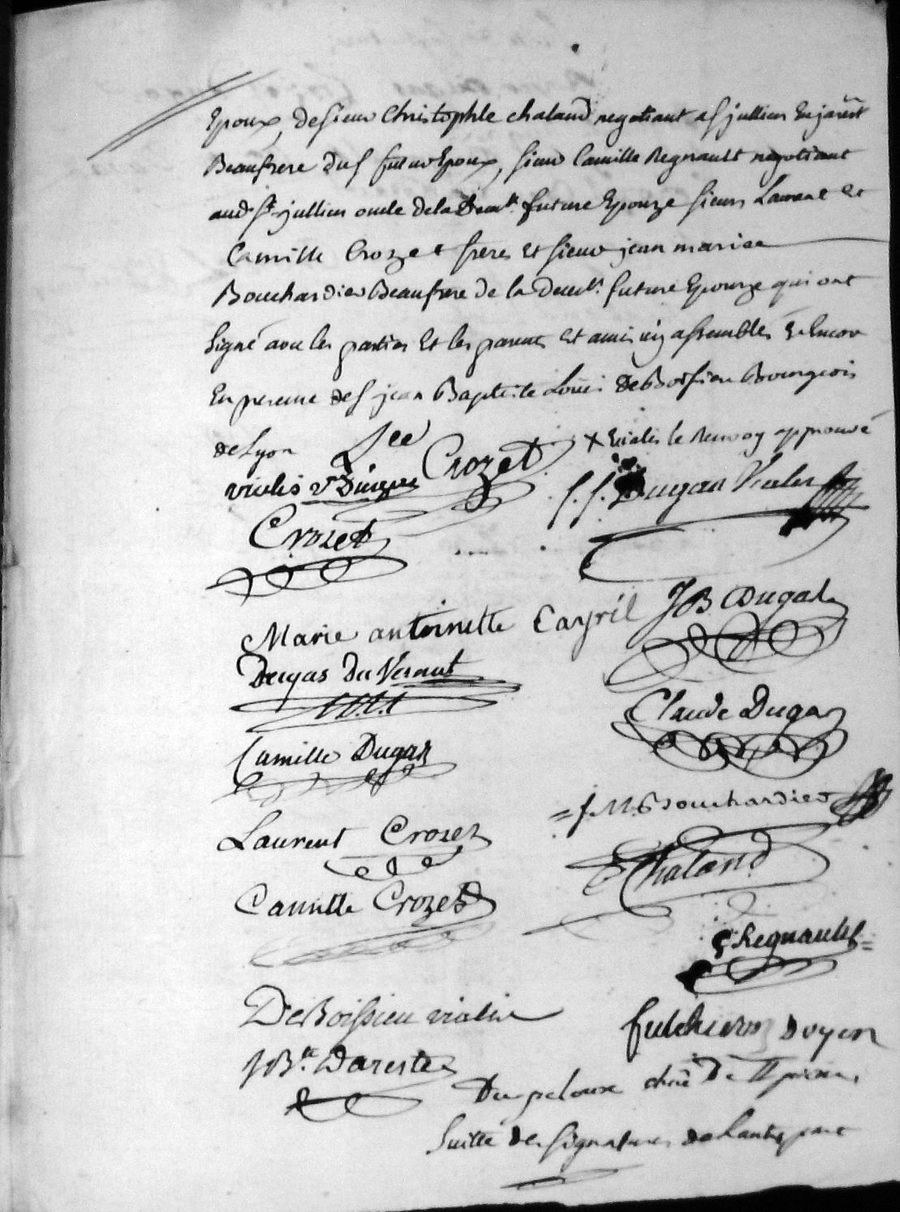 Epoux, de sieur Christophle chaland negotiant a st jullien En jarest
Beaufrere du s futur Epoux, sieur Camille Regnault negotiant
aud st jullien oncle de la future Epouze sieurs Laurent et
Camille Crozet freres et sieur jean marie
Bouchardier Beaufrere de la future Epouze qui ont
signé avec les parties Et les parents et amis icy assemblés Et Encor
En presence de s jean Baptiste Loüis DeBoissieu Bourgeois
de Lyon
+ le Renvoy approuvé
Crozet
vialis ve Dugas
J. J. Dugas Vialis
Crozet
Marie antoinette Cayril
JB Dugas
Dugas du Vernat
Claude Dugas
Camille Dugas
J. M. Bouchardier
Laurent Crozet
Chaland
Camille Crozet
C Regnault
DeBoissieu vialis
fulchiron Doyen
JBte Dareste
Du peloux
Suitte des signatures de Lautre part